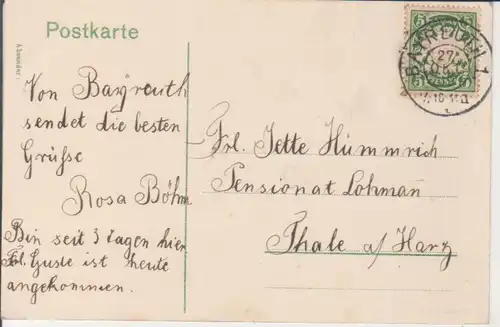 Postkarte
Absender:
Von Bayreuth
sendet die besten
Grüße
Rosa Böhm
Bin seit 3 Tagen hier
Frl. Guste ist heute
angekommen.
Frl. Jette Hümmrich
Pensionat Lohman
Thale a/Harz
5
5
BAYREUTH 1
27